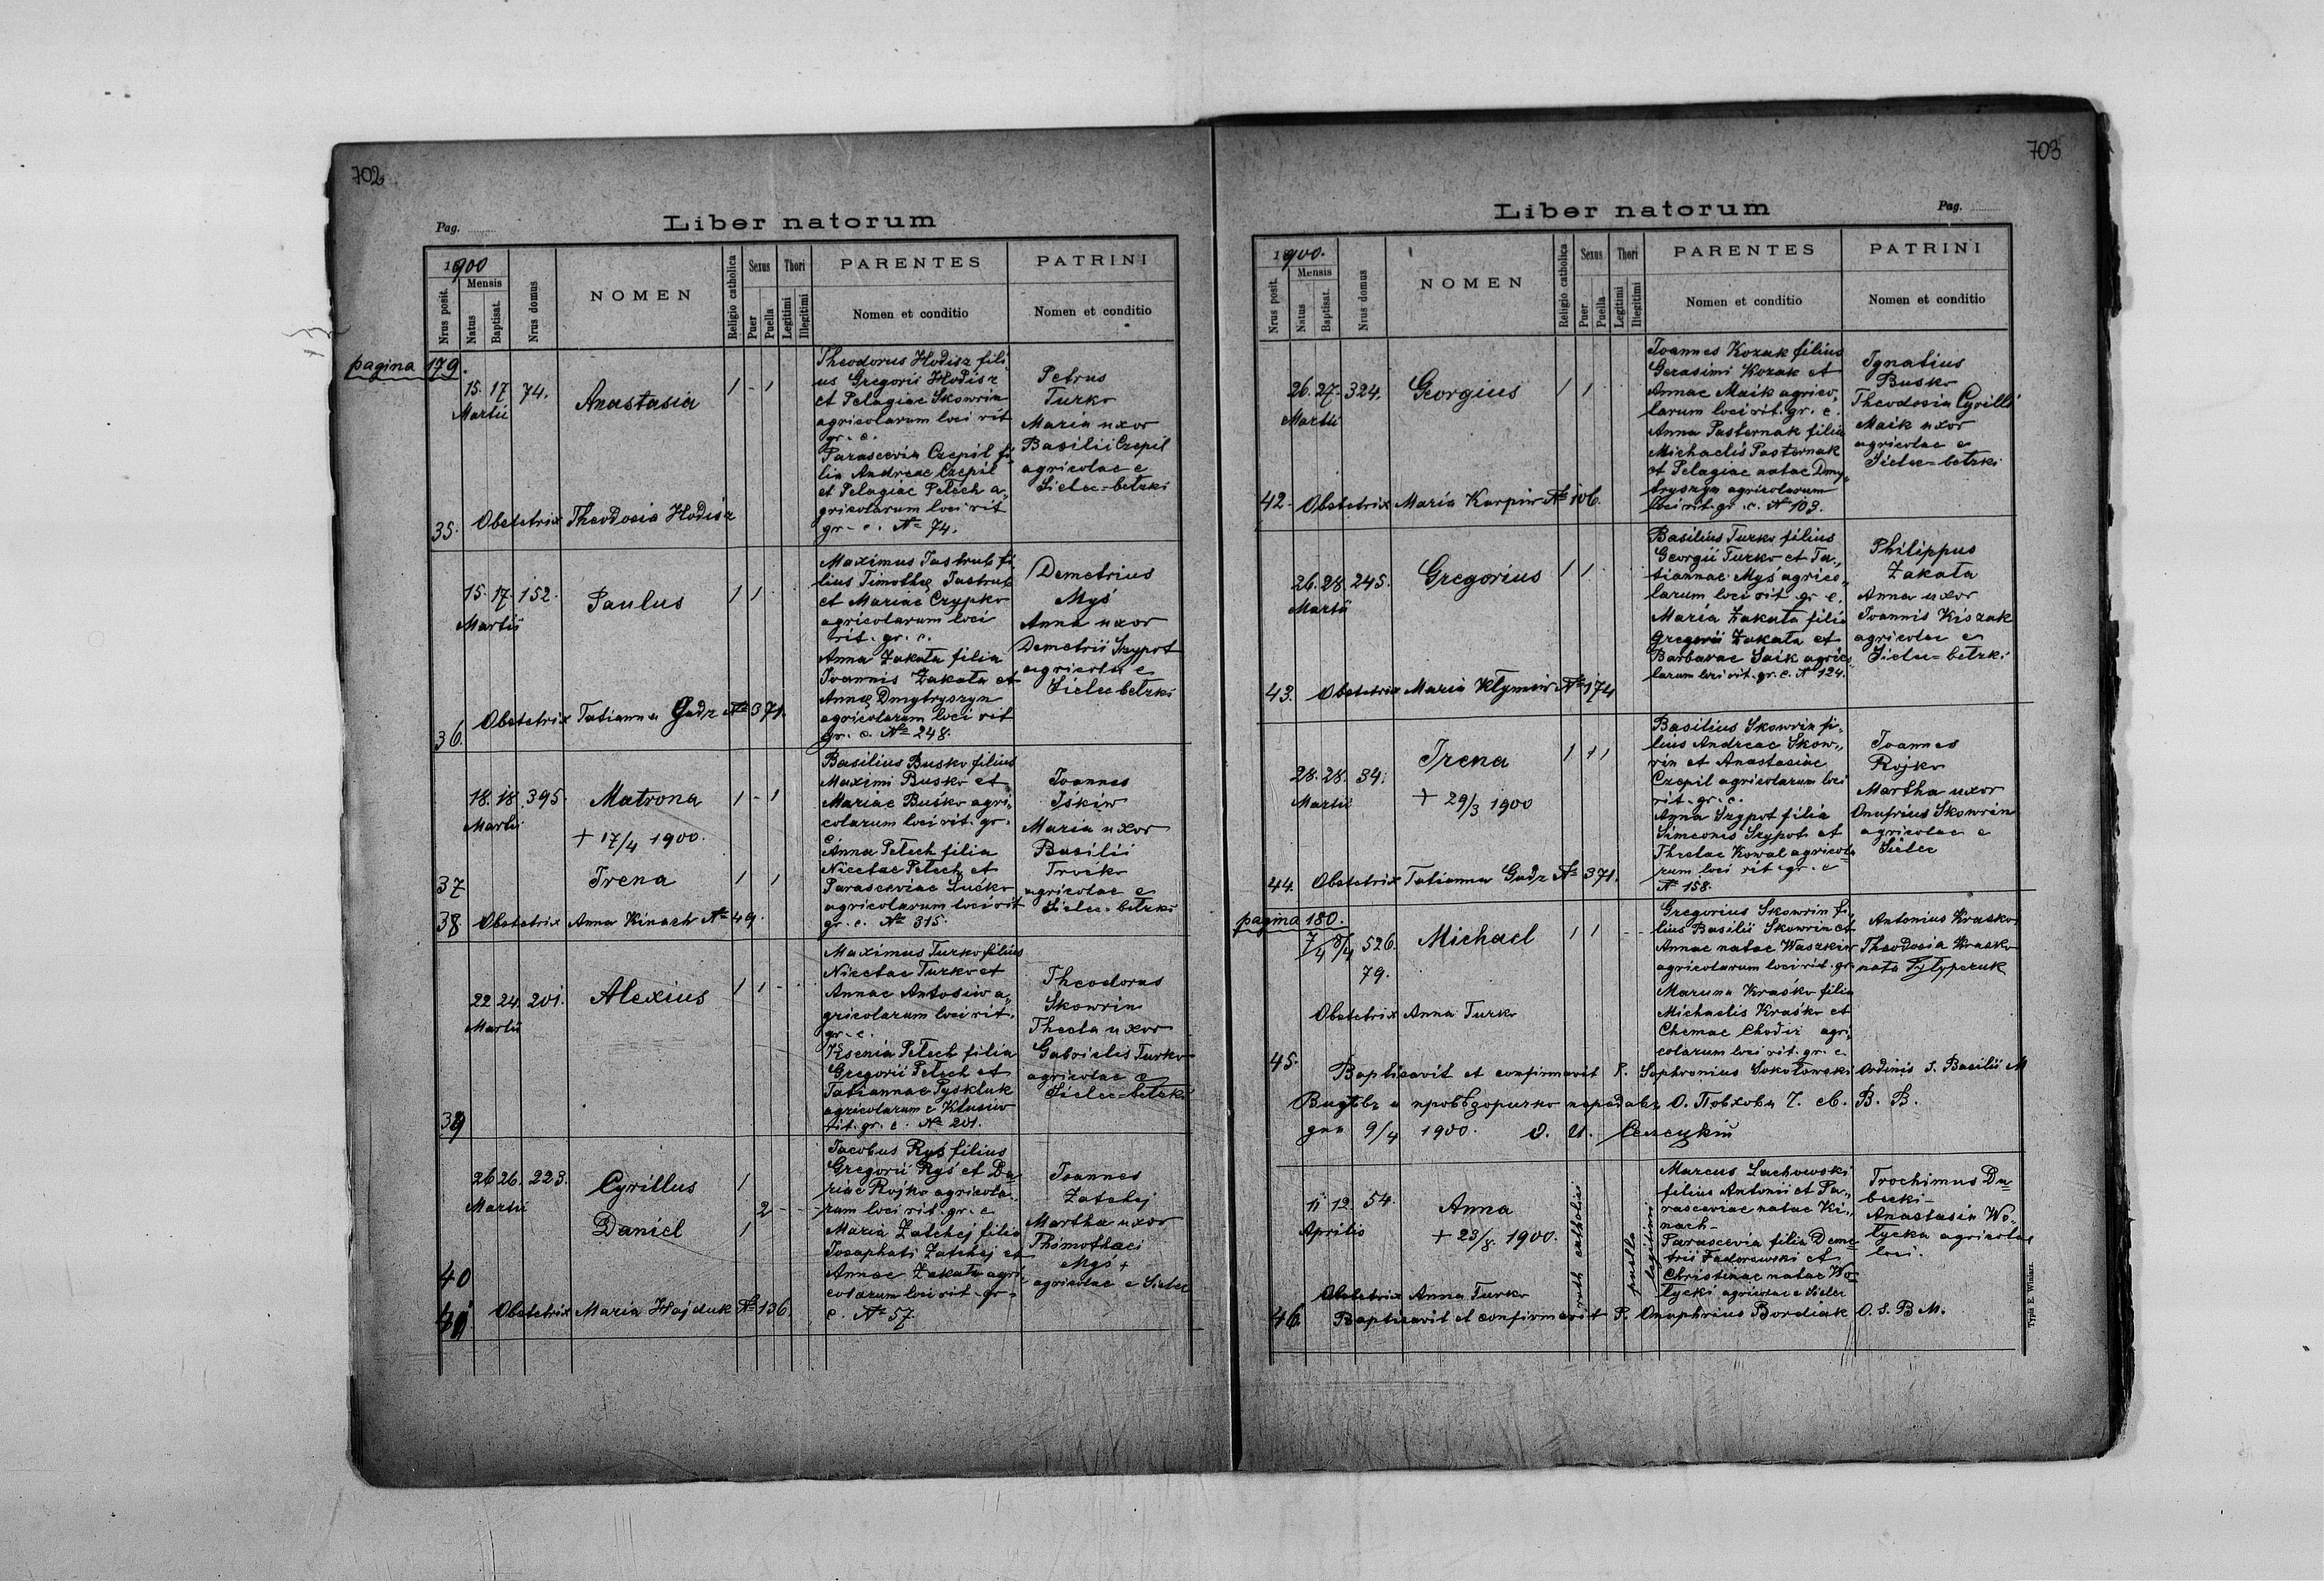 702
Pag.
Liber natorum
1900
Nrus posit.
Mensis
Natus
Baptisat.
Nrus domus
NOMEN
Religio catholica
Sexus
Puer
Puella
Thori
Legitimi
Illegitimi
PARENTES
Nomen et conditio
PATRINI
Nomen et conditio
pagina 179.
15. 17 74.
Martii
Anastasia
1 - 1
Theodorus Hodisz fili-
us Gregorii Hodisz
et Pelagiae Skowrin
agricolarum loci rit
gr. c.
Parascevia Czepil fi-
lia Andreae Czepil
et Pelagiae Pełech a-
gricolarum loci rit
gr. c. № 74.
Petrus
Turko
Maria uxor
Basilii Czepil
agricolae e
Sielec-bełzki
35. Obstetrix Theodosia Hodisz
15. 17. 152.
Martii
Paulus
1 1
Maximus Jastrub fi
lius Timothei Jastrub
et Mariae Czypko
agricolarum loci
rit. gr. c.
Anna Zakała filia
Joannis Zakała et
Annae Dmytryszyn
agricolarum loci rit
gr. c. № 248.
Demetrius
Myś
Anna uxor
Demetrii Szypot
agricolae e
Sielec bełzki
36. Obstetrix Tatianna Gadz № 371.
18. 18. 395.
Martii
Matrona
1 - 1
+ 17/4 1900.
Irena
1 1
Basilius Busko filius
Maximi Busko et
Mariae Buśko agri-
colarum loci rit. gr.
c.
Anna Pełech filia
Nicetae Pełech et
Parasceviae Łućko
agricolarum loci rit
gr. c. № 315.
Joannes
Iśkiw
Maria uxor
Basilii
Troćko
agricolae e
Sielec-bełzki
37
38 Obstetrix Anna Kinach № 49.
22 24. 201.
Martii
Alexius
1 1
Maximus Turko filius
Nicetae Turko et
Annae Antosiw a-
gricolarum loci rit.
gr. c.
Ksenia Pełech filia
Gregorii Pełech et
Tatiannae Pyskluk
agricolarum e Kłusiw
rit. gr. c. № 201.
Theodorus
Skowrin
Thecla uxor
Gabrielis Turko
agricolae e
Sielec-bełzki
39
26 26. 223.
Martii
Cyrillus
1
2
Daniel
1
Jacobus Ryś filius
Gregorii Ryś et Da-
riae Rojko agricola-
rum loci rit. gr. c
Maria Zatchej filia
Josaphati Zatchej et
Annae Zakała agri-
colarum loci rit. gr.
c. № 57.
Joannes
Zatchej
Martha uxor
Thimothaei
Myś +
agricolae e Sielec
40
41 Obstetrix Maria Hajduk № 136.
703
Liber natorum
Pag.
1900.
Nrus posit.
Mensis
Natus
Baptisat.
Nrus domus
NOMEN
Religio catholica
Sexus
Puer
Puella
Thori
Legitimi
Illegitimi
PARENTES
Nomen et conditio
PATRINI
Nomen et conditio
26. 27. 324.
Martii
Georgius
1 1
Joannes Kozak filius
Gerasimi Kozak et
Annae Maik agrico-
larum loci rit. gr. c.
Anna Pasternak filia
Michaelis Pasternak
et Pelagiae natae Dmy-
tryszyn agricolarum
loci rit. gr. c. № 103.
Ignatius
Busko
Theodosia Cyrilli
Maik uxor
agricolae e
Sielec-bełzki
42. Obstetrix Maria Karpiw № 106.
26. 28. 245.
Martii
Gregorius
1 1
Basilius Turko filius
Georgii Turko et Ta-
tiannae Myś agrico-
larum loci rit. gr. c.
Maria Zakała filia
Gregorii Zakała et
Barbarae Saik agrico-
larum loci rit. gr. c. № 124.
Philippus
Zakała
Anna uxor
Joannis Kiszak
agricolae e
Sielec-bełzki
43. Obstetrix Maria Kłymiw № 174
28. 28. 34.
Martii
Irena
1 1 1
+ 29/3 1900
Basilius Skowrin fi-
lius Andreae Skow-
rin et Anastasiae
Czepil agricolarum loci
rit. gr. c.
Anna Szypot filia
Simeonis Szypot et
Theclae Kowal agricola
rum loci rit. gr. c
№ 158.
Joannes
Rojko
Martha uxor
Onufrius Skowrin
agricolae e
Sielec
44. Obstetrix Tatianna Gadz № 371.
pagina 180.
7/4 8/4 526.
79.
Michael
1 1
Gregorius Skowrin fi-
lius Basilii Skowrin et
Annae natae Waszkiw
agricolarum loci rit. gr.
Maruna Kraśko filia
Michaelis Kraśko et
Chemae Chodir agri-
colarum loci rit. gr. c.
Antonius Krasko
Theodosia Krasko
nata Pyłypczuk
Obstetrix Anna Turko
45. Baptisavit et confirmavit P. Sophronius Sokołowski Ordinis S. Basilii M
9/4 1900.
11 12 54.
Aprilis
Anna
+ 23/8. 1900.
ruth catholici
puella
legitimi
Marcus Lachowski
filius Antonii et Pa-
rasceviae natae Ki-
nach -
Parascevia filia Deme-
trii Fedorowski et
Christinae natae Wo-
łycki agricolae e Sielec
Trochimus Du-
becki -
Anastasia Wo-
łycka agricolae
loci.
Obstetrix Anna Turko
46. Baptisavit et confirmavit P. Onuphrius Bordiak O. S. B M.
Typis E. Winiarz.